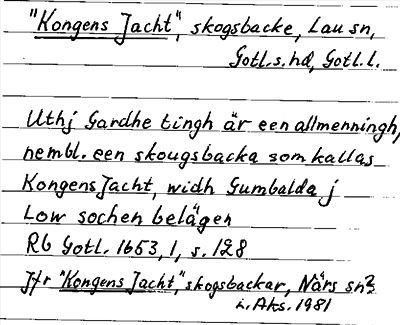 "Kongens Jacht", skogsbacke, Lau sn,
Gotl.s.hd, Gotl.l.
Uthj Gardhe tingh är een allmenningh,
nembl. een skougsbacka som kallas
Kongens Jacht, widh Gumbalda j
Low sochen belägen
Rb Gotl. 1653, 1, s. 128
Jfr "Kongens Jacht", skogsbackar, Närs sn?
i. Aks. 1981